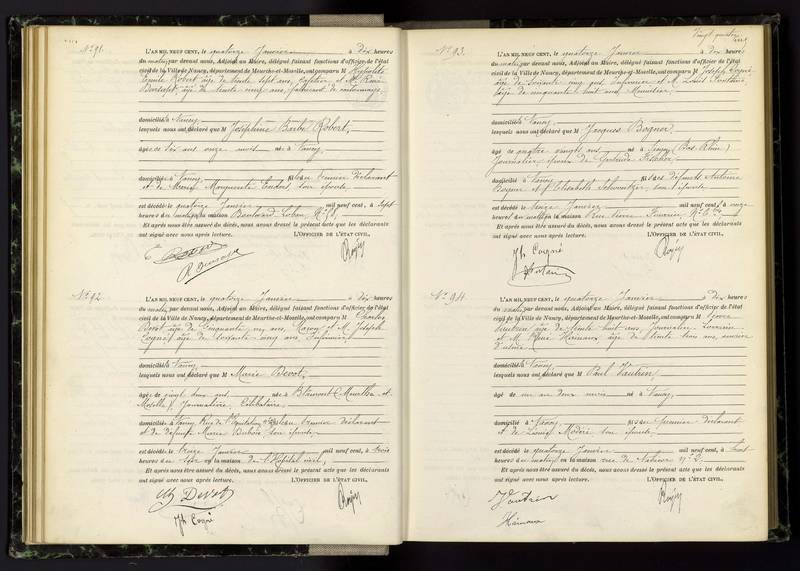 Vingt quatre
N° 91.
L'AN MIL NEUF CENT, le quatorze Janvier à Dix heures
du matin par devant nous, Adjoint au Maire, délégué faisant fonctions d'officier de l'état
civil de la Ville de Nancy, département de Meurthe-et-Moselle, ont comparu M Hippolyte
Emile Robert âgé de trente sept ans, Cafetier et M. René
âgé de trente cinq ans, fabricant de cartonnages
domiciliés à Nancy
lesquels nous ont déclaré que M Joséphine Barbe Robert,
âgée de six ans onze mois née à Nancy,
domiciliée à Nancy fille du premier déclarant
et de Marguerite son épouse
est décédée le quatorze Janvier mil neuf cent, à sept
heures du matin en la maison Boulevard Lobau, N°
Et après nous être assuré du décès, nous avons dressé le présent acte que les déclarants
ont signé avec nous après lecture. L'OFFICIER DE L'ÉTAT CIVIL,
N° 92.
L'AN MIL NEUF CENT, le quatorze Janvier à dix heures
du matin par devant nous, Adjoint au Maire, délégué faisant fonctions d'officier de l'état
civil de la Ville de Nancy, département de Meurthe-et-Moselle, ont comparu M Charles
Devot âgé de Cinquante un ans, Maçon et M. Joseph
Cogné âgé de soixante cinq ans Infirmier
domiciliés à Nancy
lesquels nous ont déclaré que M Marie Devot,
âgée de vingt deux ans, née à Blâmont (Meurthe et
Moselle) Journalière Célibataire,
domiciliée à Nancy Rue de fille du premier déclarant
et de défunte Marie Dubois son épouse
est décédée le treize Janvier mil neuf cent, à trois
heures du soir en la maison de l'Hôpital civil,
Et après nous être assuré du décès, nous avons dressé le présent acte que les déclarants
ont signé avec nous après lecture. L'OFFICIER DE L'ÉTAT CIVIL,
Ch Devot
Jh Cogné
N° 93.
L'AN MIL NEUF CENT, le quatorze Janvier à Dix heures
du matin par devant nous, Adjoint au Maire, délégué faisant fonctions d'officier de l'état
civil de la Ville de Nancy, département de Meurthe-et-Moselle, ont comparu M Joseph Cogné
âgé de soixante cinq ans Infirmier et M. Louis
âgé de cinquante huit ans, Menuisier
domiciliés à Nancy
lesquels nous ont déclaré que M Jacques Bogner
âgé de quatre vingts ans né à (Bas Rhin)
Journalier, époux de
domicilié à Nancy fils des défunts Antoine
Bogner et Elisabeth Schweitzer, son épouse
est décédé le treize Janvier mil neuf cent, à onze
heures du matin en la maison Rue
Et après nous être assuré du décès, nous avons dressé le présent acte que les déclarants
ont signé avec nous après lecture. L'OFFICIER DE L'ÉTAT CIVIL,
Jh Cogné
N° 94.
L'AN MIL NEUF CENT, le quatorze Janvier à Dix heures
du matin par devant nous, Adjoint au Maire, délégué faisant fonctions d'officier de l'état
civil de la Ville de Nancy, département de Meurthe-et-Moselle, ont comparu M
Vautrin âgé de trente huit ans, Journalier
et M. âgé de trente trois ans,
d'usine
domiciliés à Nancy
lesquels nous ont déclaré que M Paul Vautrin
âgé de un an deux mois né à Nancy,
domicilié à Nancy fils du premier déclarant
et de son épouse
est décédé le quatorze Janvier mil neuf cent, à huit
heures du matin en la maison rue de
Et après nous être assuré du décès, nous avons dressé le présent acte que les déclarants
ont signé avec nous après lecture. L'OFFICIER DE L'ÉTAT CIVIL,
Vautrin